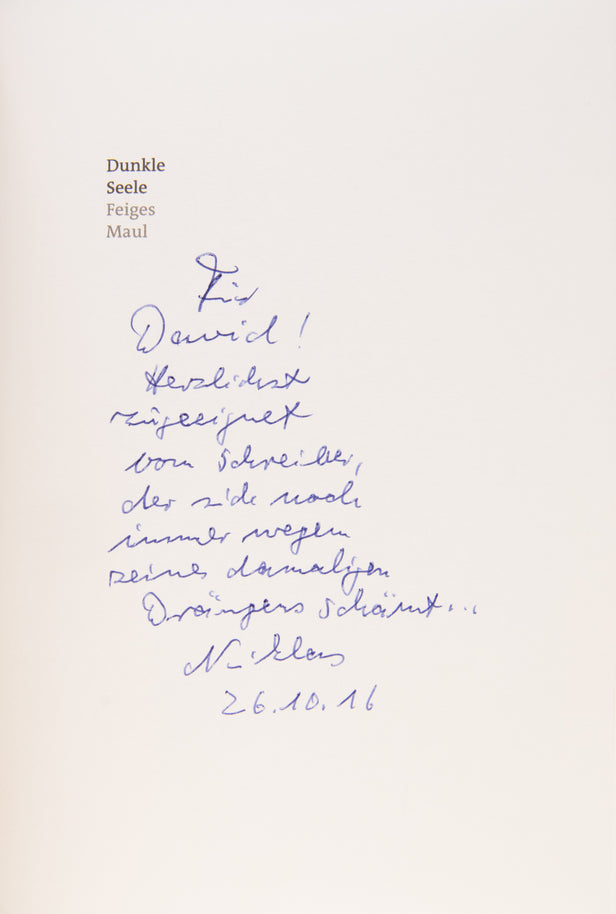 Dunkle
Seele
Feiges
Maul
Für
David!
Herzlichst
zugeeignet
vom Schreiber,
der sich noch
immer wegen
seines damaligen
Drängens schämt...
Niklas
26.10.16